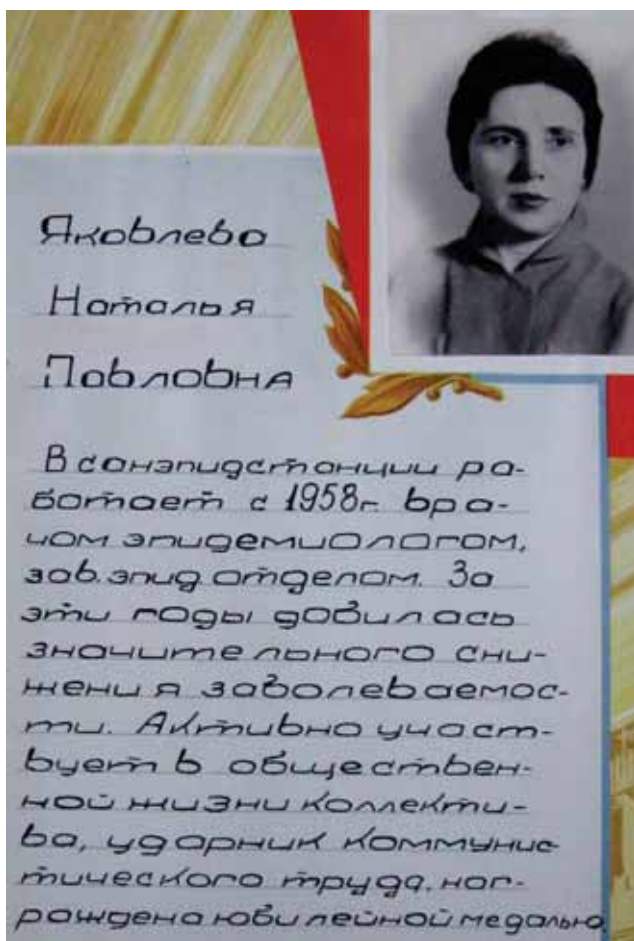 Яковлева
Наталья
Павловна
В санэпидстанции ра-
ботает с 1958г. вра-
чом эпидемиологом,
зав. эпид. отделом. За
эти годы добилась
значительного сни-
жения заболеваемос-
ти. Активно участ-
вует в обществен-
ной жизни коллекти-
ва, ударник коммунис-
тического труда, наг-
раждена юбилейной медалью